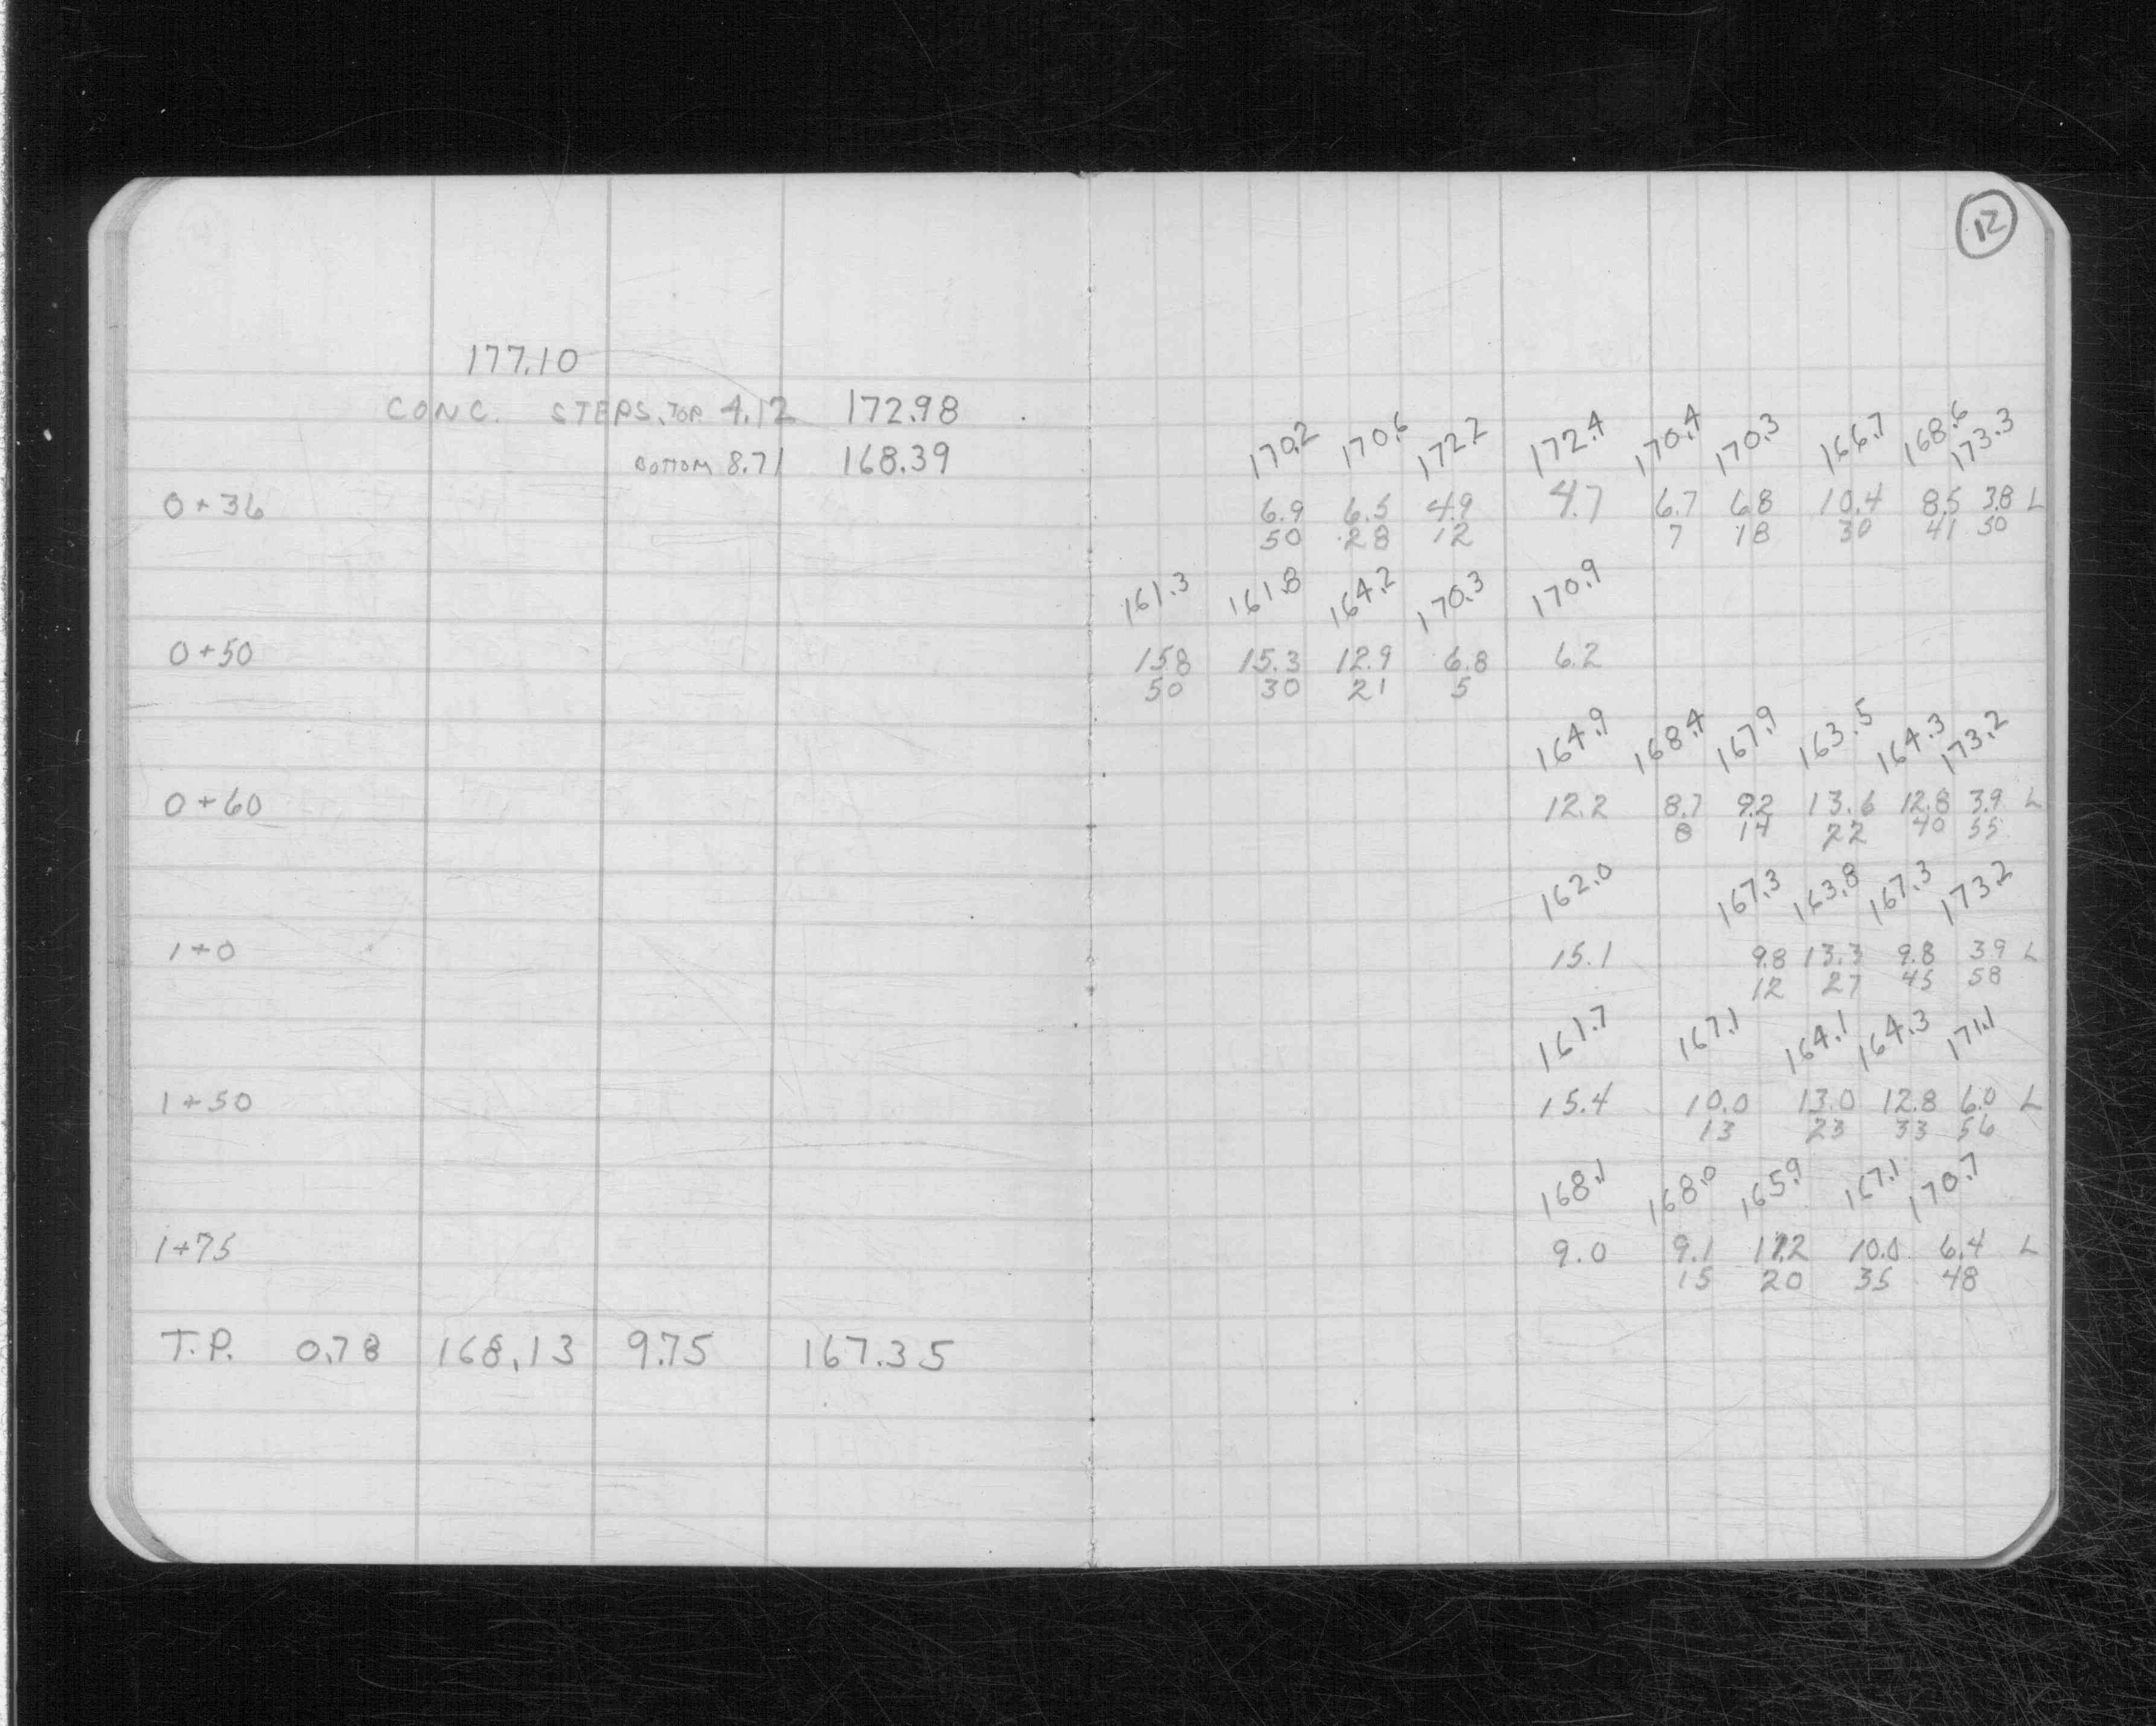 12
177.10
CONC. STEPS, TOP 4.12 172.98
BOTTOM 8.71 168.39
170.2 170.6 172.2 172.4 170.4 170.3 166.7 168.6 173.3
0+36 6.9 6.5 4.9 4.7 6.7 6.8 10.4 8.5 3.8 L
50 28 12 7 18 30 41 50
161.3 161.8 164.2 170.3 170.9
0+50 15.8 15.3 12.9 6.8 6.2
50 30 21 5
164.9 168.4 167.9 163.5 164.3 173.2
0+60 12.2 8.7 9.2 13.6 12.8 3.9 L
8 14 22 40 55
162.0 167.3 163.8 167.3 173.2
1+0 15.1 9.8 13.3 9.8 3.9 L
12 27 45 58
161.7 167.1 164.1 164.3 171.1
1+50 15.4 10.0 13.0 12.8 6.0 L
13 23 33 56
168.1 168.0 165.9 167.1 170.7
1+75 9.0 9.1 11.2 10.0 6.4 L
15 20 35 48
T.P. 0.78 168.13 9.75 167.35